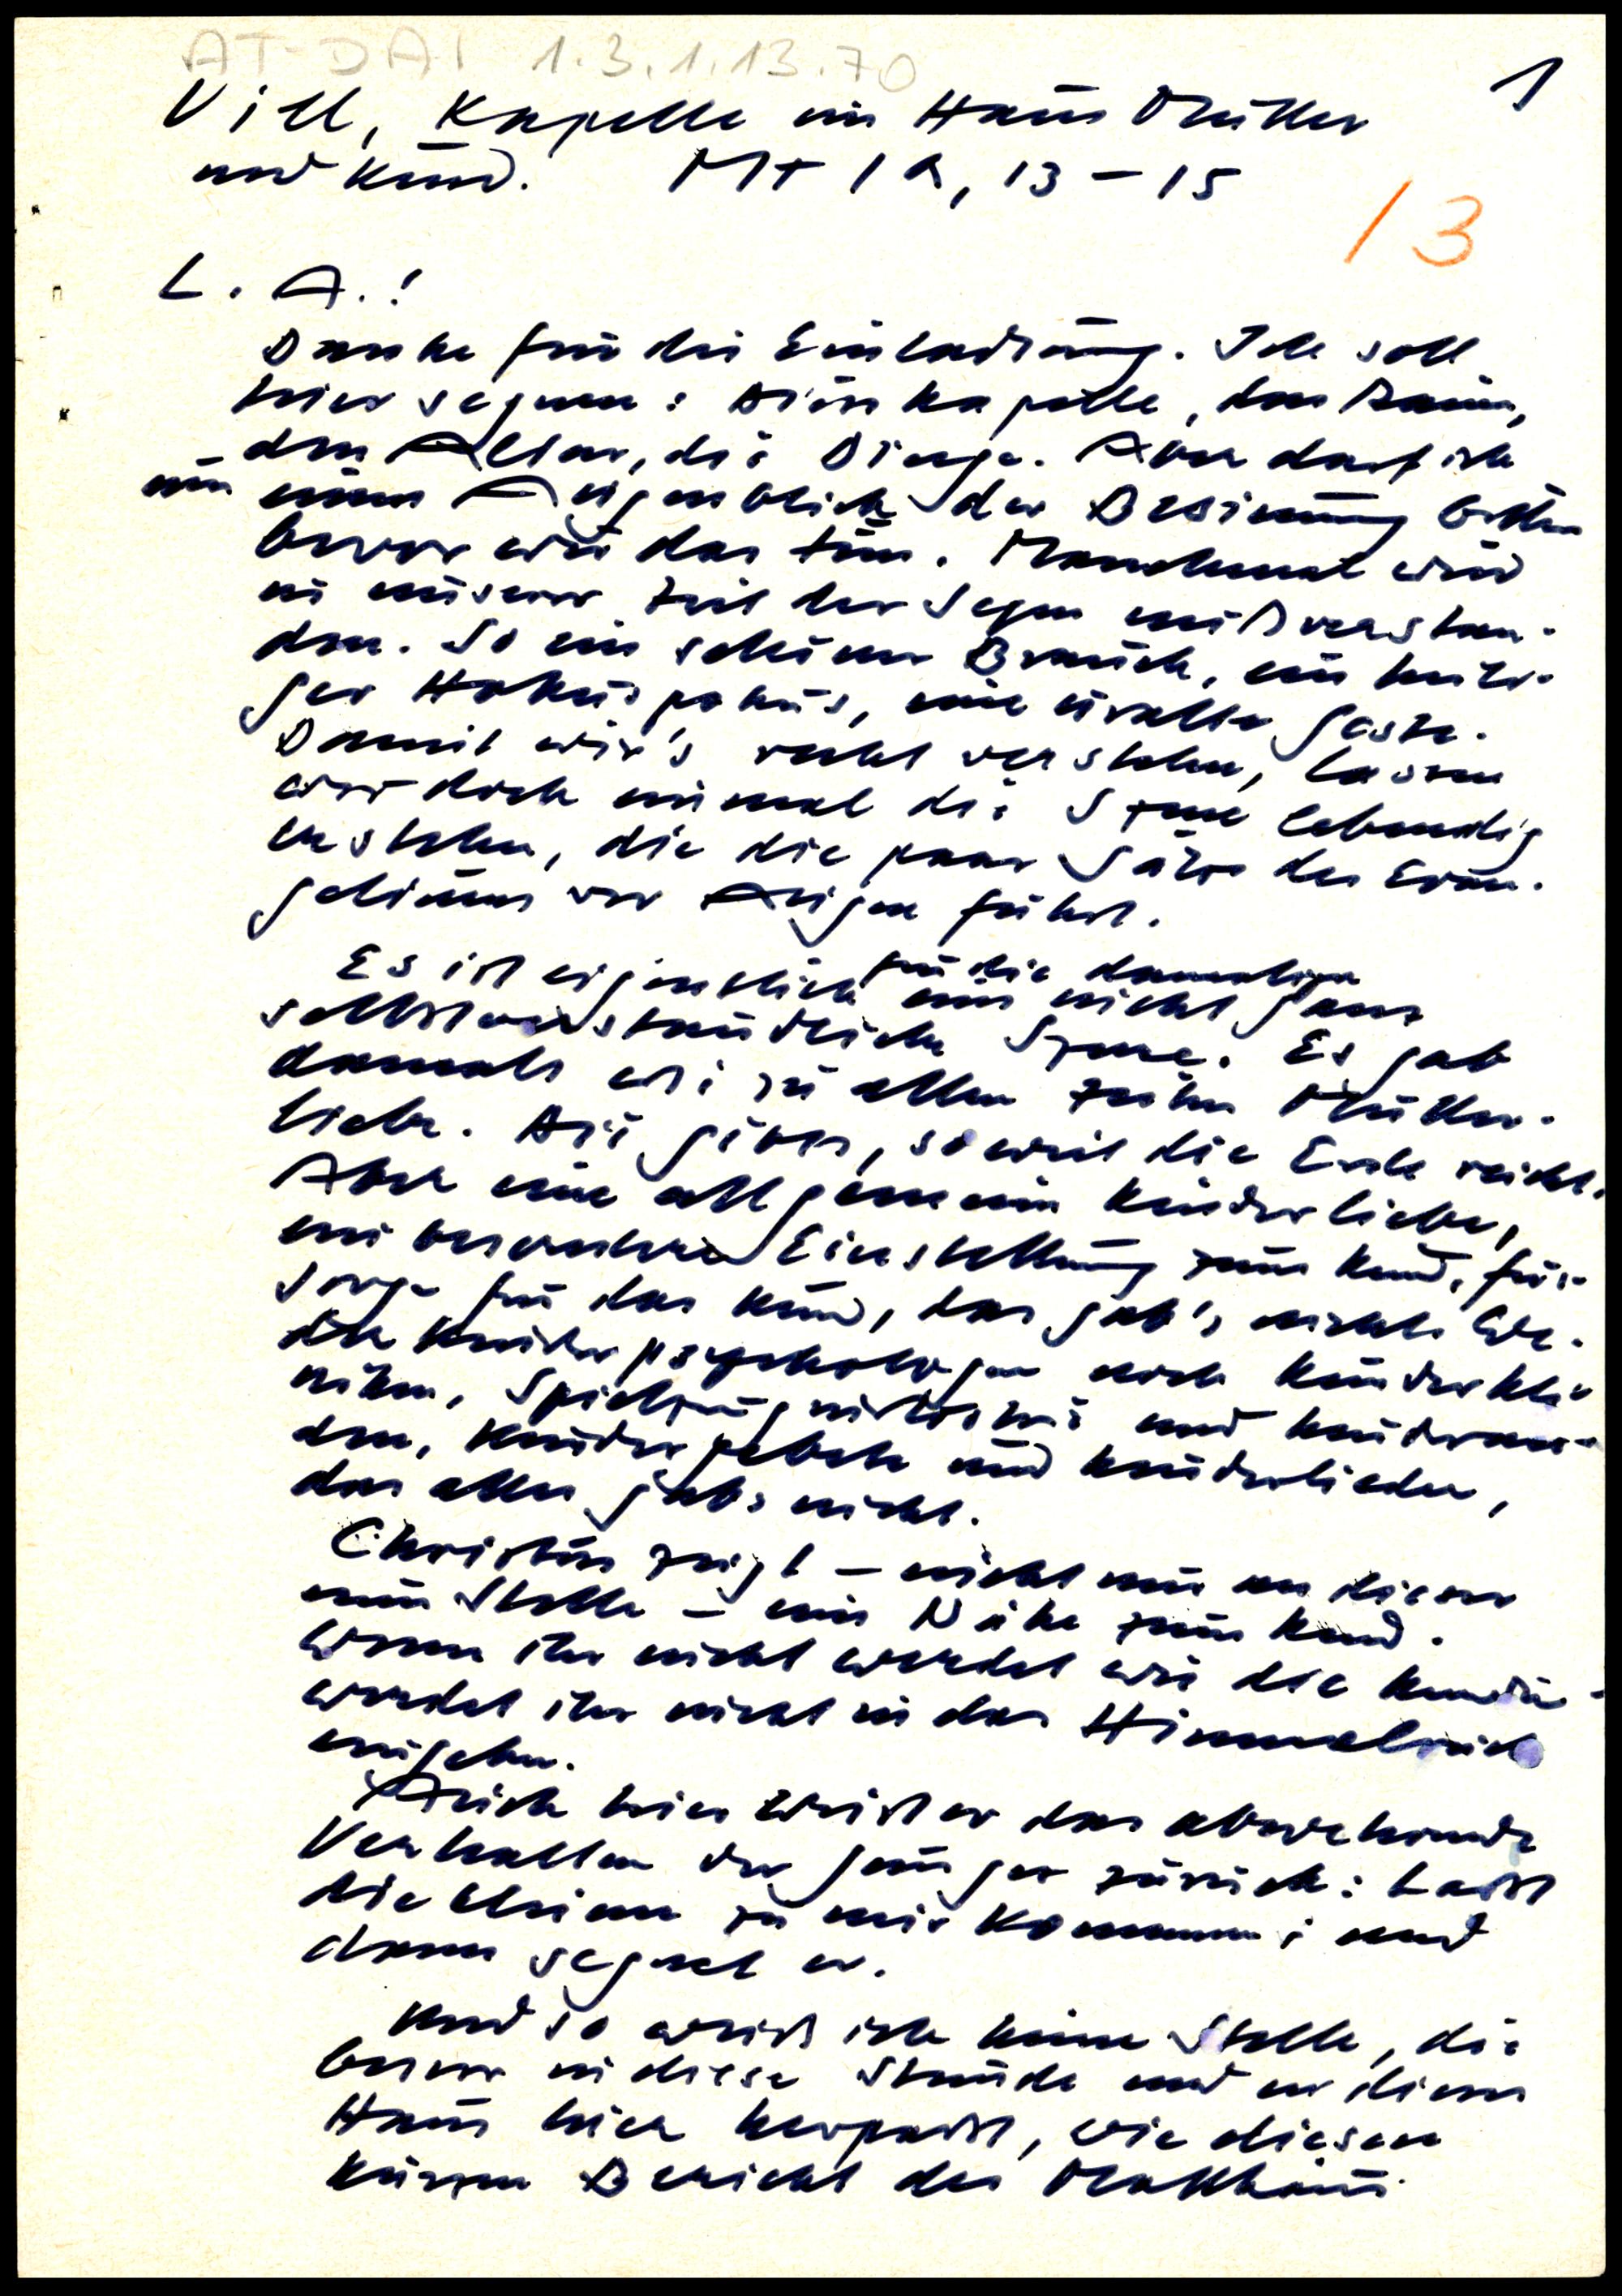 AT-DAI 1.3.1.13.70
1
Vill, Kapelle im Haus Mutter
und Kind. Mt 19, 13-15
13
L. A.!
Danke für die Einladung. Ich soll
hier segnen: Diese Kapelle, den Raum,
den Altar, die Dinge. Aber darf ich
um einen Augenblick der Besinnung bitten
bevor wir das tun. Manchmal wird
in unserer Zeit der Segen mißverstan-
den. So ein schöner Brauch, ein
Hokuspokus, eine uralte Geste.
Damit wir's recht verstehen, lassen
wir doch einmal die Szene lebendig
erstehen, die die paar Sätze des Evan-
geliums vor Augen führt.
für die damalige
Es ist eigentlich eine nicht ganz
selbstverständliche Szene. Es gab
damals wie zu allen Zeiten Mutter-
liebe. Die gibts, soweit die Erde reicht.
Aber eine allgemeine Kinderliebe,
eine besondere Einstellung zum Kind, Für-
sorge für das Kind, das gab's nicht. We-
der Kinderpsychologen noch Kinderkli-
niken, Spielzeugindustrie und
Kindergebete und Kinderlieder,
das alles gabs nicht.
Christus zeigt - nicht nur an dieser
einen Stelle - eine Nähe zum Kind.
Wenn ihr nicht werdet wie die Kinder
werdet ihr nicht in das Himmelreich
eingehen.
Auch hier weist er das abwehrende
Verhalten der Jünger zurück: Laßt
die Kleinen zu mir kommen; und
dann segnet er.
Und so weiß ich keine Stelle, die
besser in diese Stunde und in dieses
Haus hier herpaßt, wie diesen
kurzen Bericht des Matthäus.